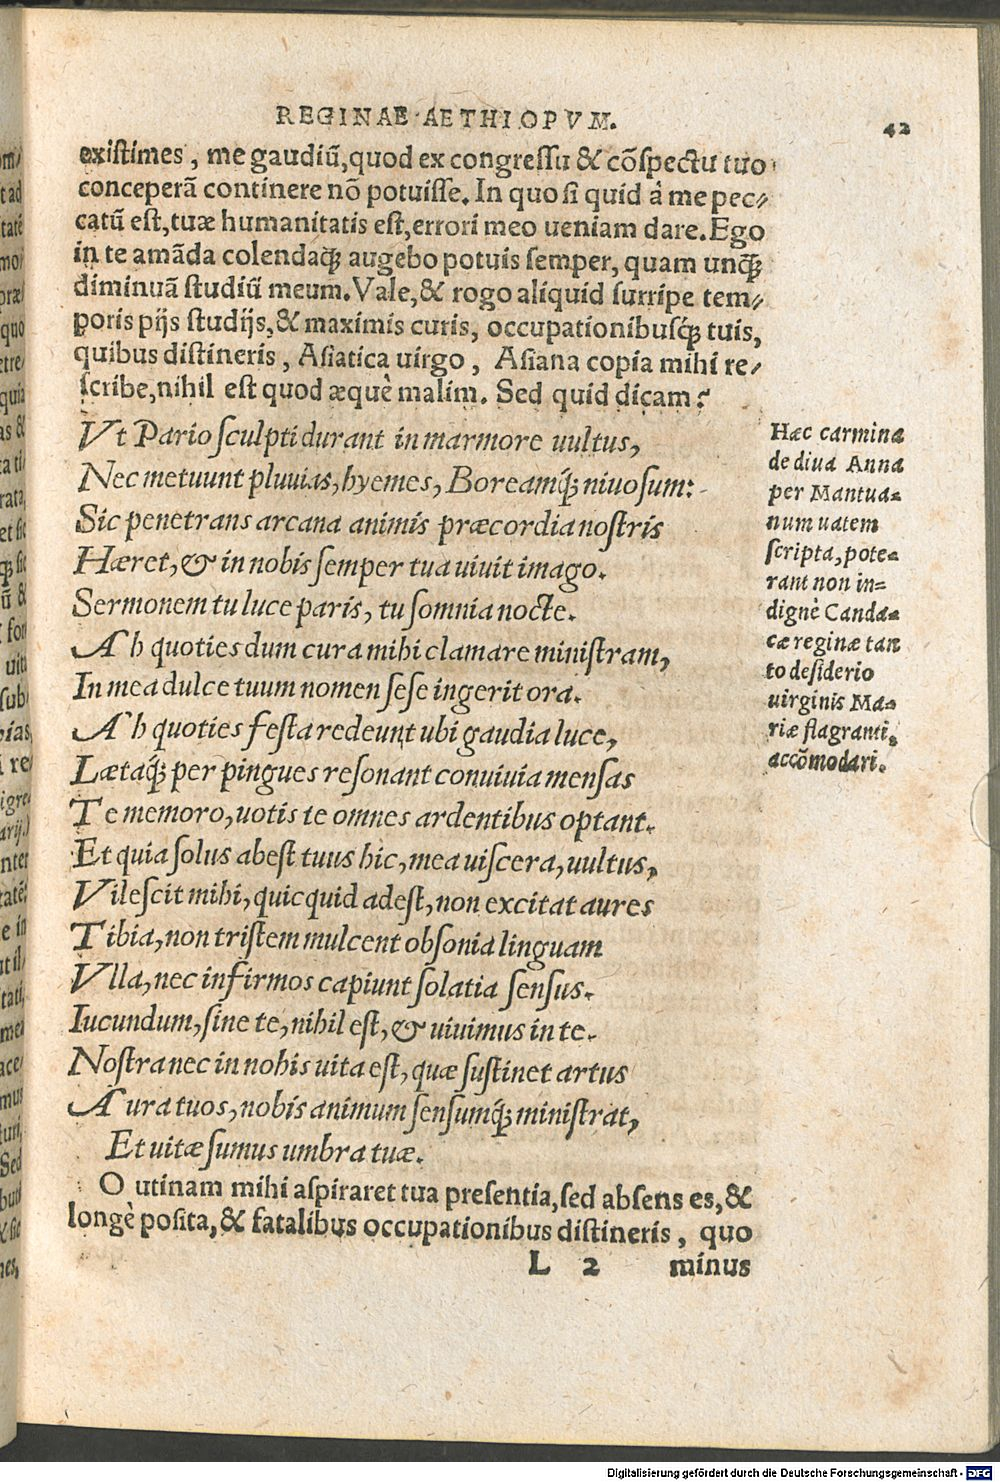 REGINAE AETHIOPVM.
42
existimes, me gaudiũ,quod ex congressu & cõspectu tuo
conceperã continere nõ potuisse. In quo si quid à me pec⸗
catũ est,tuæ humanitatis est,errori meo ueniam dare.Ego
in te amãda colendaq́; augebo potuis semper, quam unq̃;
diminuã studiũ meum.Vale,& rogo aliquid surripe tem⸗
poris pijs studijs,& maximis curis, occupationibusq́; tuis,
quibus distineris, Asiatica uirgo, Asiana copia mihi re⸗
scribe,nihil est quod æquè malim. Sed quid dicam?
Vt Pario sculpti durant in marmore uultus,
Nec metuunt pluuias, hyemes, Boreamq́; niuosum:
Sic penetrans arcana animis præcordia nostris
Hæret, & in nobis semper tua uiuit imago.
Sermonem tu luce paris, tu somnia nocte.
Ah quoties dum cura mihi clamare ministram,
In mea dulce tuum nomen sese ingerit ora.
Ah quoties festa redeunt ubi gaudia luce,
Lætaq́; per pingues resonant conuiuia mensas
Te memoro, uotis te omnes ardentibus optant.
Et quia solus abest tuus hic, mea uiscera, uultus,
Vilescit mihi, quicquid adest, non excitat aures
Tibia, non tristem mulcent obsonia linguam
Vlla, nec infirmos capiunt solatia sensus.
Iucundum, sine te, nihil est, & uiuimus in te.
Nostra nec in nobis uita est, quæ sustinet artus
Aura tuos, nobis animum sensumq́; ministrat,
Et uitæ sumus umbra tuæ.
O utinam mihi aspiraret tua presentia, sed absens es,&
longè posita, & fatalibus occupationibus distineris, quo
L 2 minus
Hæc carmina
de diua Anna
per Mantua⸗
num uatem
scripta, pote⸗
rant non in⸗
dignè Canda⸗
cæ reginæ tan
to desiderio
uirginis Ma⸗
riæ flagranti,
accõmodari.
Digitalisierung gefördert durch die Deutsche Forschungsgemeinschaft - DFG